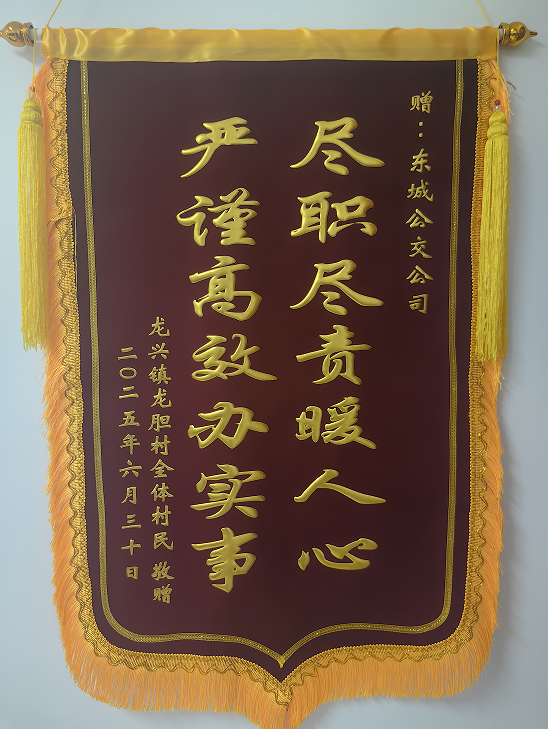 赠：东城公交公司
尽职尽责暖人心
严谨高效办实事
龙兴镇龙胆村全体村民 敬赠
二〇二五年六月三十日